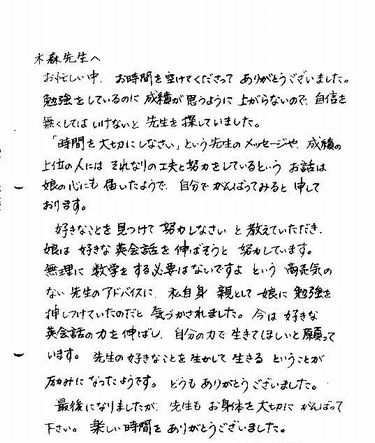 木森先生へ
お忙しい中、お時間を空けてくださって ありがとうございました。
勉強をしているのに 成績が思うように 上がらないので、自信を
無くしては いけないと 先生を 探していました。
「時間を大切にしなさい」という先生の メッセージや、成績の
上位の人には それなりの工夫と努力をしているという お話は
娘の心にも 届いたようで、自分で がんばってみると 申して
おります。
好きなことを 見つけて 努力しなさい と 教えていただき、
娘は 好きな 英会話を 伸ばそうと 努力しています。
無理に 数学を する必要はないですよ という 商売気の
ない 先生のアドバイスに、私自身 親として 娘に 勉強を
押しつけていたのだと 気づかされました。今は 好きな
英会話の力を 伸ばし、自分の力で 生きてほしいと 願って
います。 先生の好きなことを 生かして 生きる ということが
励みに なったようです。 どうも ありがとうございました。
最後になりましたが、先生も お身体を大切に がんばって
下さい。 楽しい時間を ありがとうございました。